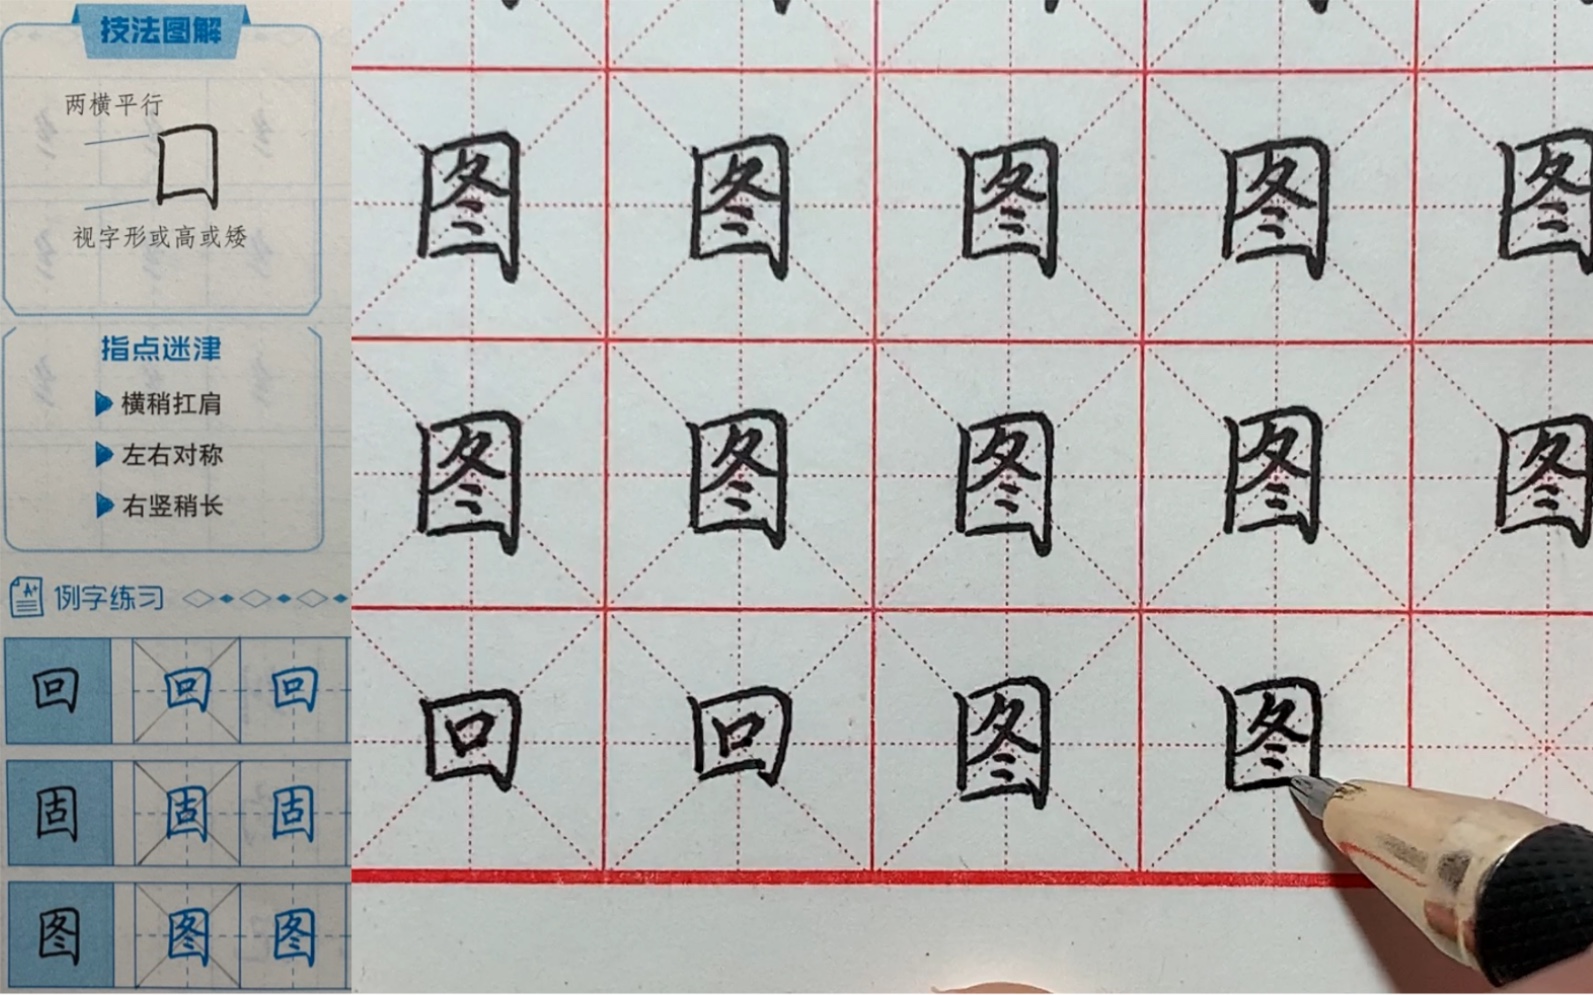 技法图解
两横平行
口
视字形或高或矮
指点迷津
横稍扛肩
左右对称
右竖稍长
例字练习
回 回 回
固 固 固
图 图 图
图 图 图 图 图
图 图 图 图 图
回 回 图 图